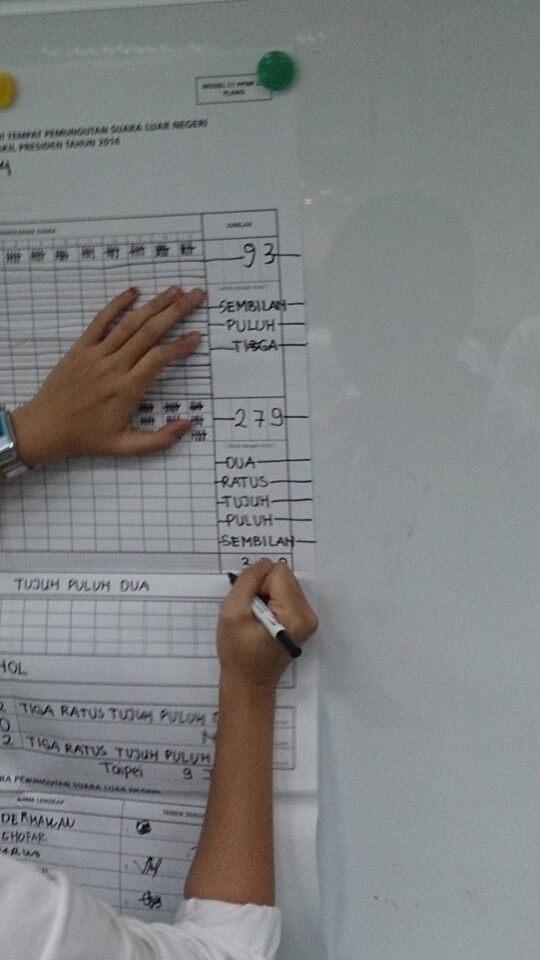 MODEL C1 PPWP
PLANO
TEMPAT PEMUNGUTAN SUARA LUAR NEGERI
PRESIDEN TAHUN 2014
JUMLAH
93
SEMBILAN
PULUH
TIGA
279
DUA
RATUS
TUJUH
PULUH
SEMBILAN
TUJUH PULUH DUA
2 TIGA RATUS TUJUH PULUH
2 TIGA RATUS TUJUH PULUH
Taipei 9
PEMUNGUTAN SUARA LUAR NEGERI
NAMA LENGKAP
DERMAWAN
GHOFAR